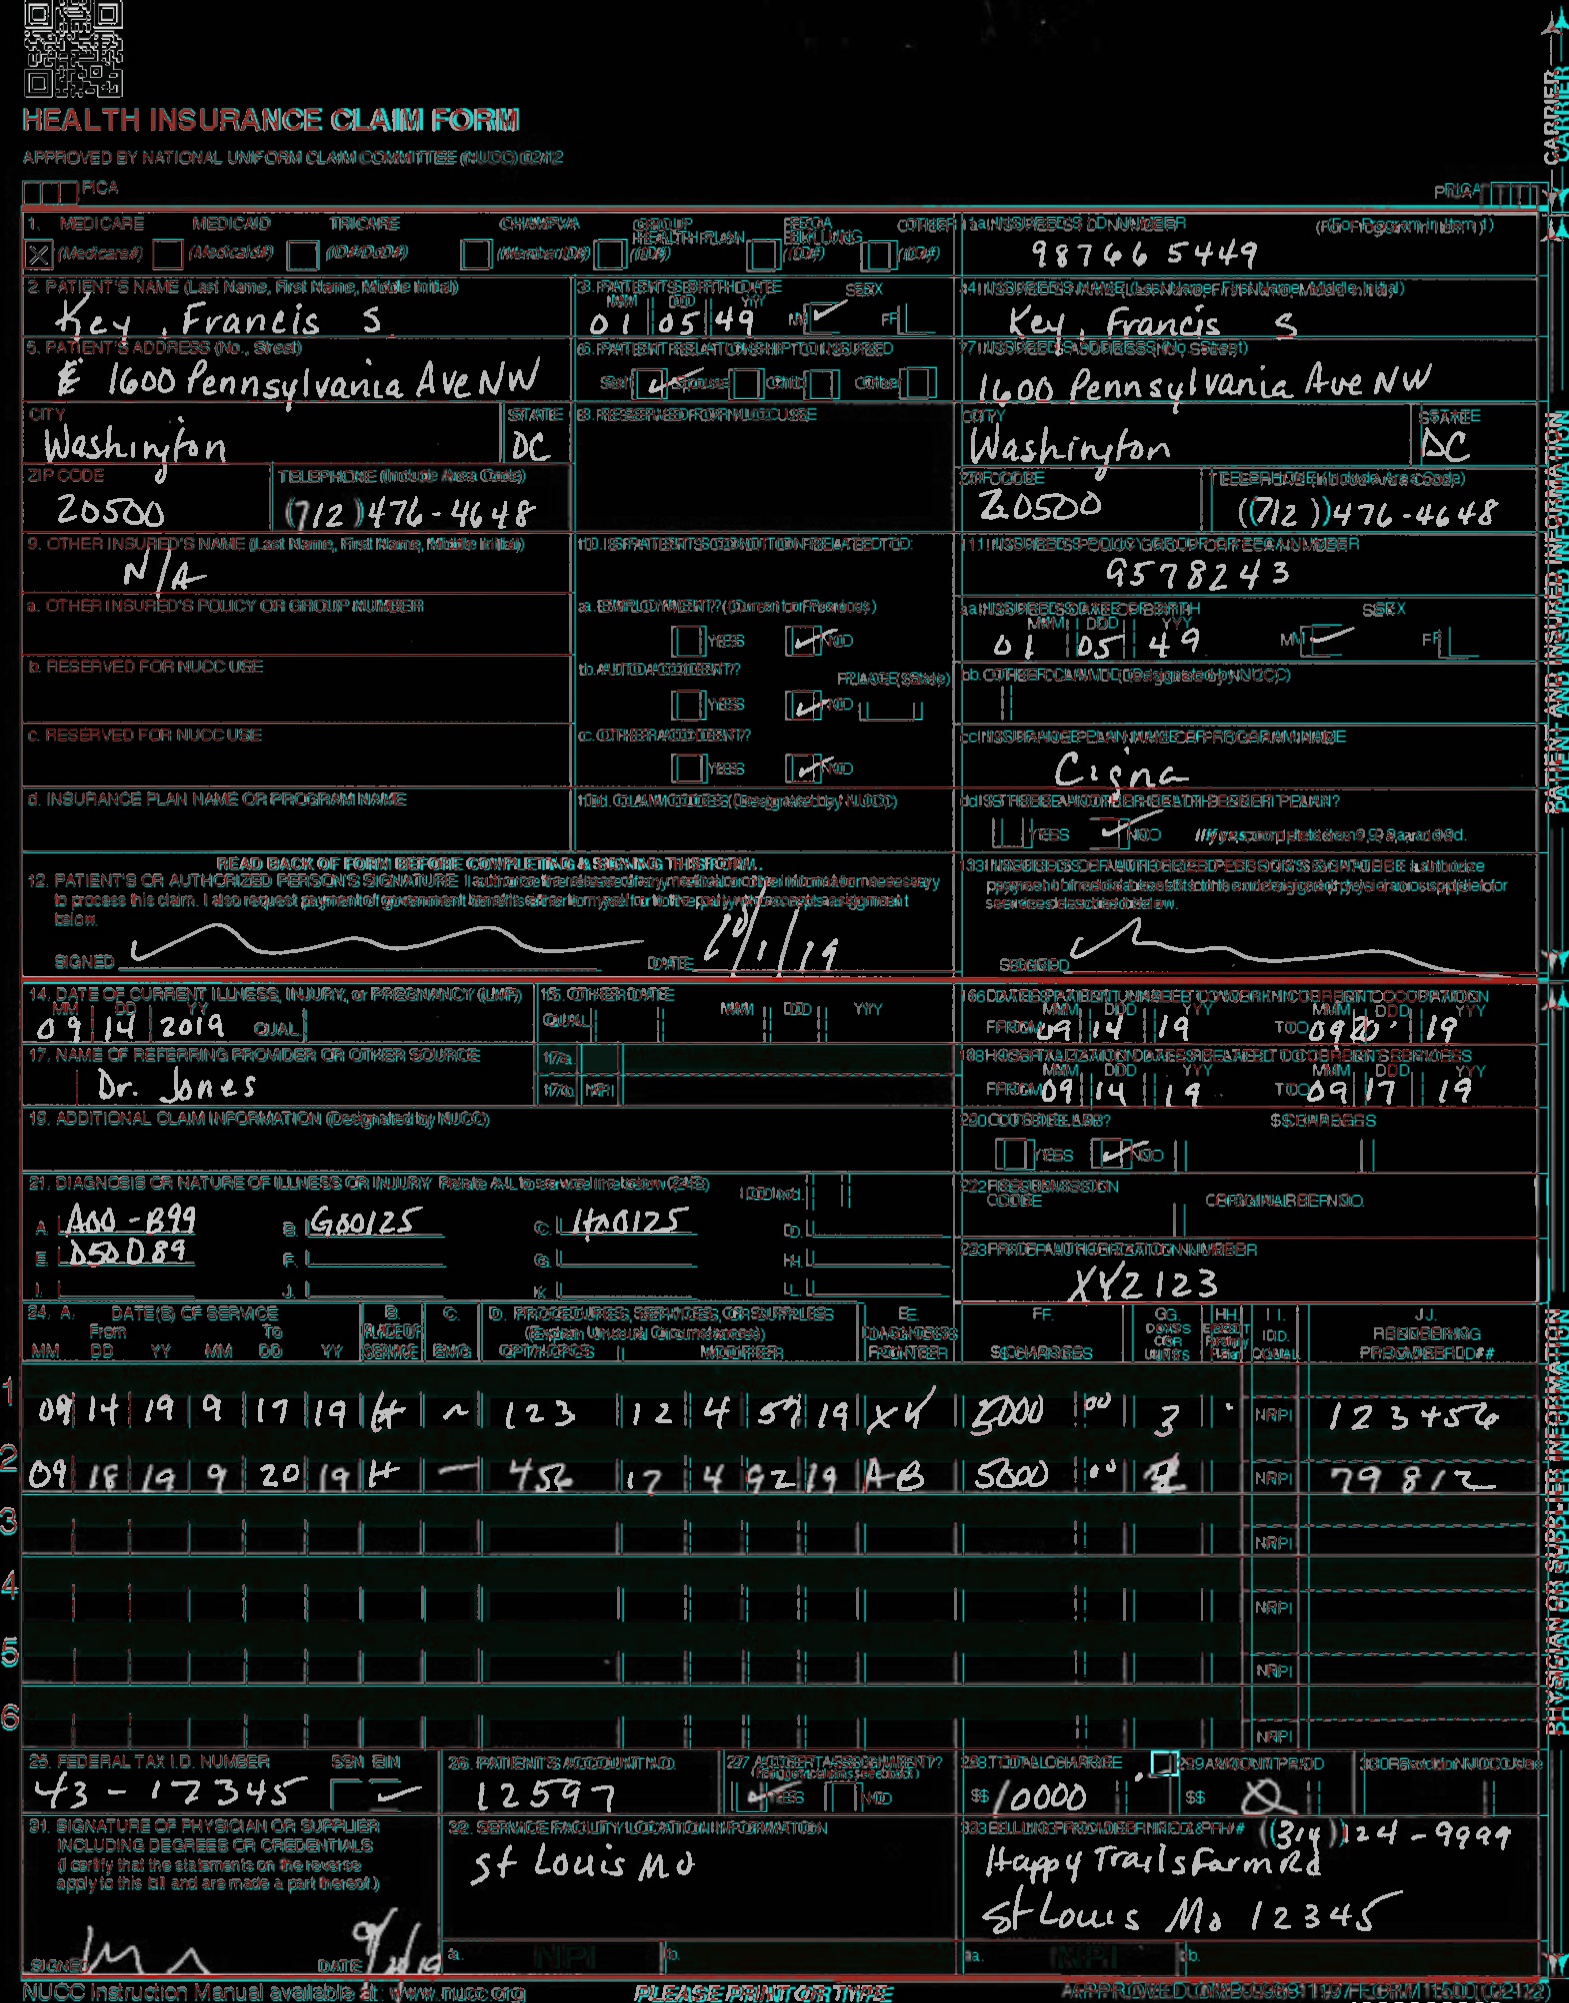 HEALTH INSURANCE CLAIM FORM
APPROVED BY NATIONAL UNIFORM CLAIM COMMITTEE (NUCC) 02/12
PICA
PICA
CARRIER
1. MEDICARE MEDICAID TRICARE CHAMPVA GROUP HEALTH PLAN FECA BLK LUNG OTHER
(Medicare#) (Medicaid#) (ID#/DoD#) (Member ID#) (ID#) (ID#) (ID#)
1a. INSURED'S I.D. NUMBER (For Program in Item 1)
98766 5449
2. PATIENT'S NAME (Last Name, First Name, Middle Initial)
Key, Francis S
3. PATIENT'S BIRTH DATE SEX
MM DD YY
01 05 49 M F
4. INSURED'S NAME (Last Name, First Name, Middle Initial)
Key, Francis S
5. PATIENT'S ADDRESS (No., Street)
1600 Pennsylvania Ave NW
6. PATIENT RELATIONSHIP TO INSURED
Self Spouse Child Other
7. INSURED'S ADDRESS (No., Street)
1600 Pennsylvania Ave NW
CITY STATE
Washington DC
8. RESERVED FOR NUCC USE
CITY STATE
Washington DC
ZIP CODE TELEPHONE (Include Area Code)
20500 (712) 476-4648
ZIP CODE TELEPHONE (Include Area Code)
20500 (712) 476-4648
9. OTHER INSURED'S NAME (Last Name, First Name, Middle Initial)
N/A
10. IS PATIENT'S CONDITION RELATED TO:
11. INSURED'S POLICY GROUP OR FECA NUMBER
9578243
a. OTHER INSURED'S POLICY OR GROUP NUMBER
a. EMPLOYMENT? (Current or Previous)
YES NO
a. INSURED'S DATE OF BIRTH SEX
MM DD YY
01 05 49 M F
b. RESERVED FOR NUCC USE
b. AUTO ACCIDENT? PLACE (State)
YES NO
b. OTHER CLAIM ID (Designated by NUCC)
c. RESERVED FOR NUCC USE
c. OTHER ACCIDENT?
YES NO
c. INSURANCE PLAN NAME OR PROGRAM NAME
Cigna
d. INSURANCE PLAN NAME OR PROGRAM NAME
10d. CLAIM CODES (Designated by NUCC)
d. IS THERE ANOTHER HEALTH BENEFIT PLAN?
YES NO If yes, complete items 9, 9a, and 9d.
READ BACK OF FORM BEFORE COMPLETING & SIGNING THIS FORM.
12. PATIENT'S OR AUTHORIZED PERSON'S SIGNATURE I authorize the release of any medical or other information necessary
to process this claim. I also request payment of government benefits either to myself or to the party who accepts assignment
below.
SIGNED DATE /1/19
13. INSURED'S OR AUTHORIZED PERSON'S SIGNATURE I authorize
payment of medical benefits to the undersigned physician or supplier for
services described below.
SIGNED
PATIENT AND INSURED INFORMATION
14. DATE OF CURRENT ILLNESS, INJURY, or PREGNANCY (LMP)
MM DD YY
09 14 2019 QUAL
15. OTHER DATE
QUAL. MM DD YY
16. DATES PATIENT UNABLE TO WORK IN CURRENT OCCUPATION
MM DD YY MM DD YY
FROM 09 14 19 TO 09 20 19
17. NAME OF REFERRING PROVIDER OR OTHER SOURCE
Dr. Jones
17a.
17b. NPI
18. HOSPITALIZATION DATES RELATED TO CURRENT SERVICES
MM DD YY MM DD YY
FROM 09 14 19 TO 09 17 19
19. ADDITIONAL CLAIM INFORMATION (Designated by NUCC)
20. OUTSIDE LAB? $ CHARGES
YES NO
21. DIAGNOSIS OR NATURE OF ILLNESS OR INJURY Relate A-L to service line below (24E) ICD Ind.
A. A00-B99 B. G00125 C. H00125 D.
E. D50D89 F. G. H.
I. J. K. L.
22. RESUBMISSION CODE ORIGINAL REF. NO.
23. PRIOR AUTHORIZATION NUMBER
XYZ123
24. A. DATE(S) OF SERVICE B. C. D. PROCEDURES, SERVICES, OR SUPPLIES E. F. G. H. I. J.
From To PLACE OF (Explain Unusual Circumstances) DIAGNOSIS DAYS OR UNITS EPSDT Family Plan ID. RENDERING
MM DD YY MM DD YY SERVICE EMG CPT/HCPCS MODIFIER POINTER $ CHARGES QUAL. PROVIDER ID. #
1 09 14 19 9 17 19 H ~ 123 12 4 57 19 XY 5000 00 3 NPI 123456
2 09 18 19 9 20 19 H — 456 17 4 92 19 AB 5000 00 NPI 79812
3 NPI
4 NPI
5 NPI
6 NPI
25. FEDERAL TAX I.D. NUMBER SSN EIN
43-12345
26. PATIENT'S ACCOUNT NO.
12597
27. ACCEPT ASSIGNMENT?
YES NO
28. TOTAL CHARGE
$ 10000
29. AMOUNT PAID
$ 0
30. Rsvd for NUCC Use
31. SIGNATURE OF PHYSICIAN OR SUPPLIER
INCLUDING DEGREES OR CREDENTIALS
(I certify that the statements on the reverse
apply to this bill and are made a part thereof.)
SIGNED DATE
32. SERVICE FACILITY LOCATION INFORMATION
St Louis Mo
a. NPI b.
33. BILLING PROVIDER INFO & PH # (314) 124-9999
Happy Trails Farm Rd
St Louis Mo 12345
a. NPI b.
PHYSICIAN OR SUPPLIER INFORMATION
NUCC Instruction Manual available at: www.nucc.org
PLEASE PRINT OR TYPE
APPROVED OMB-0938-1197 FORM 1500 (02-12)